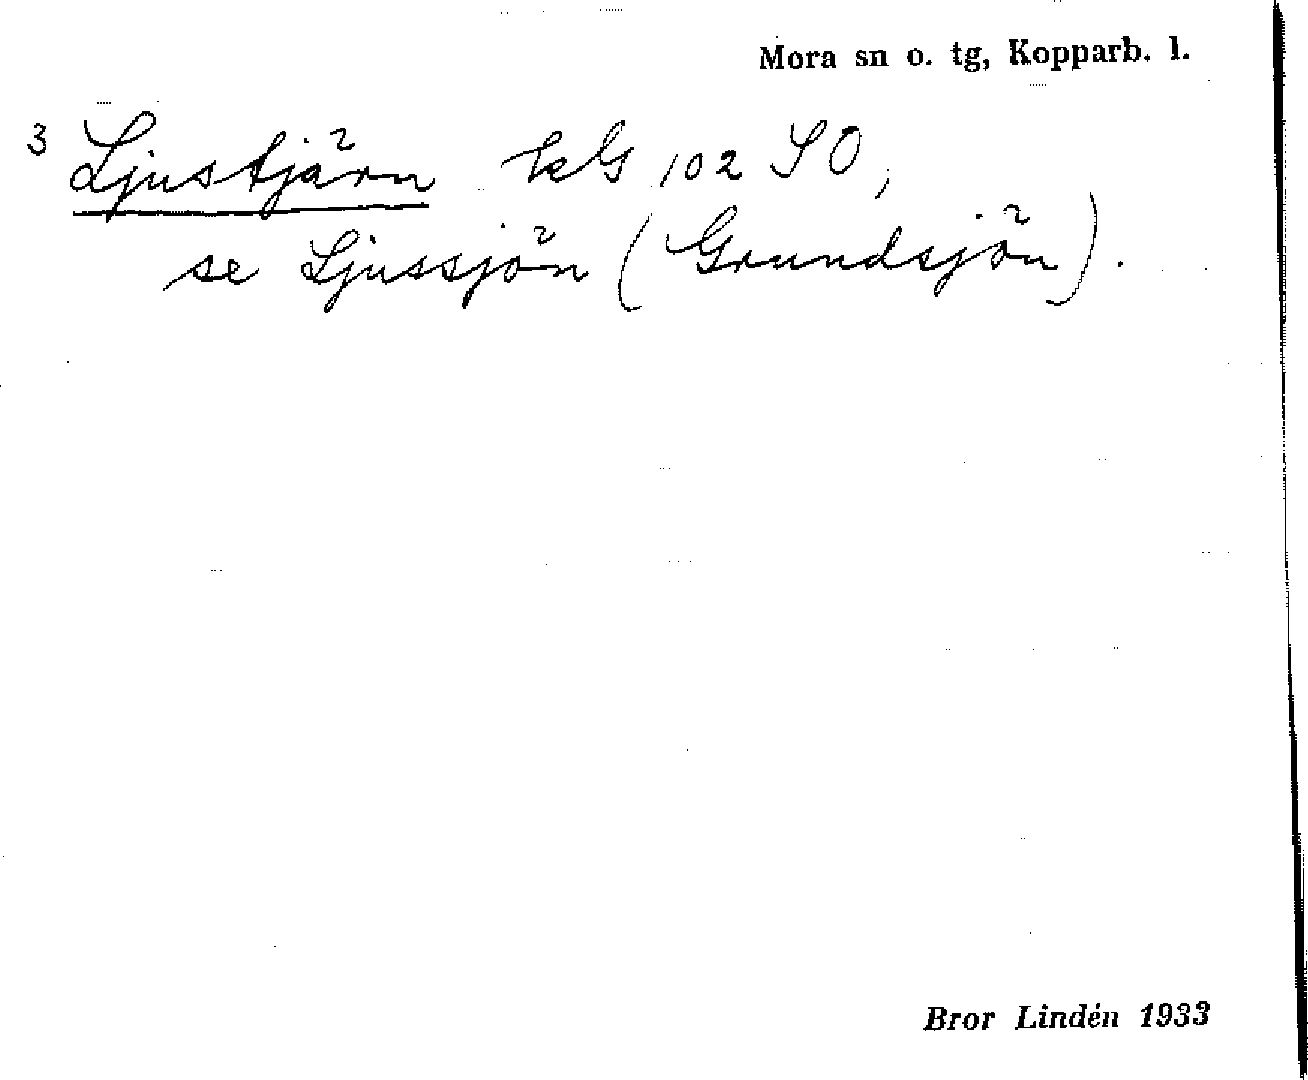 Mora sn o. tg, Kopparb. l.
3 Ljustjärn kG 102 SO,
se Ljussjön (Grundsjön).
Bror Lindén 1933